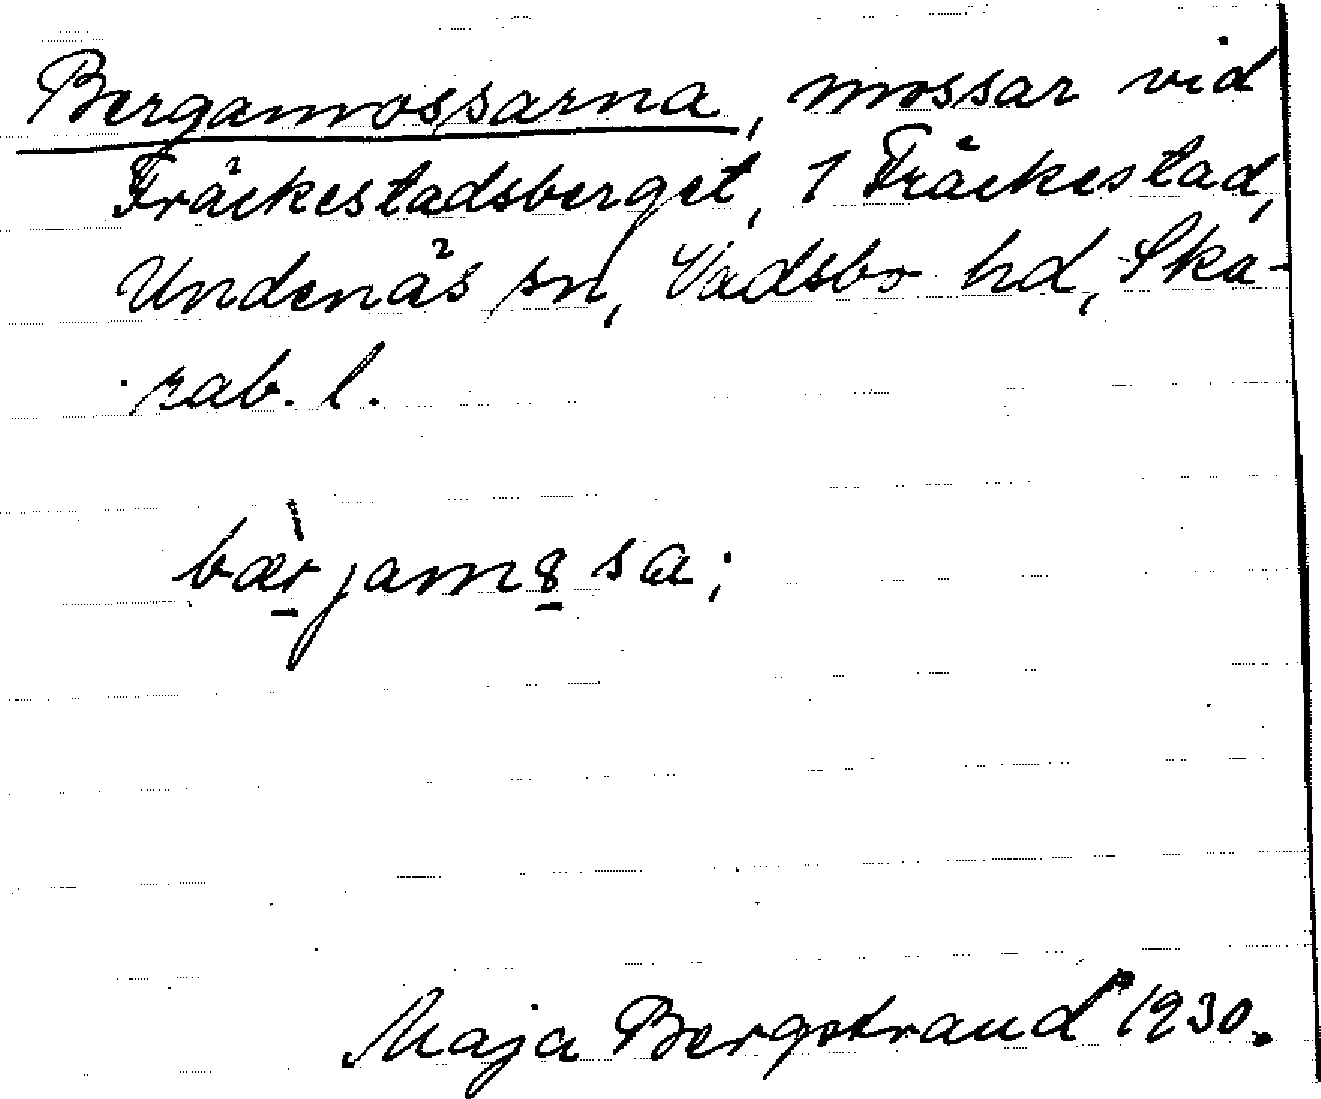 Bergamossarna, mossar vid
Fräckestadsberget, 1 Fräckestad,
Undenäs sn, Vadsbo hd, Ska-
rab. l.
bær̀jamo̲sa;
Maja Bergstrand 1930.